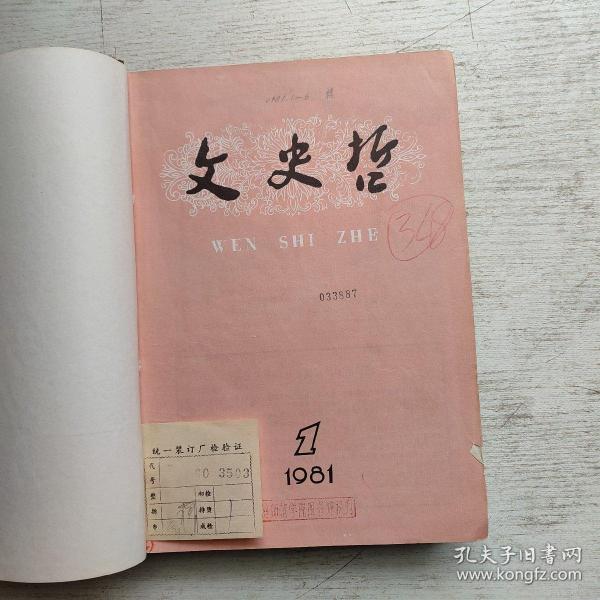 文史哲
WEN SHI ZHE
348
033887
1
1981
统一装订厂检验证
代号
60 3503
整 初检
持货
成检
孔夫子旧书网
www.kongfz.com